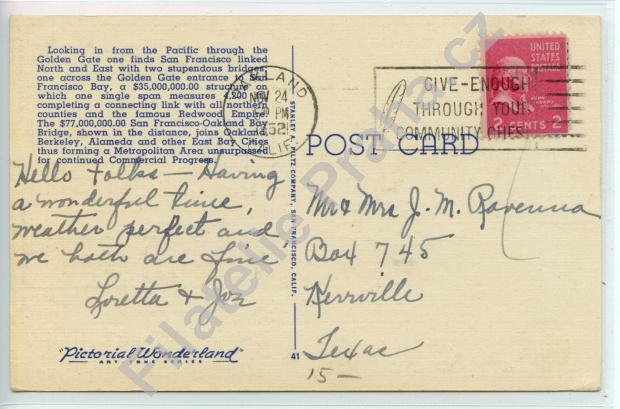 Looking in from the Pacific through the
Golden Gate one finds San Francisco linked
North and East with two stupendous bridges;
one across the Golden Gate entrance to San
Francisco Bay, a $35,000,000.00 structure on
which one single span measures 4,200 ft.
completing a connecting link with all northern
counties and the famous Redwood Empire.
The $77,000,000.00 San Francisco-Oakland Bay
Bridge, shown in the distance, joins Oakland,
Berkeley, Alameda and other East Bay Cities
thus forming a Metropolitan Area unsurpassed
for continued Commercial Progress.
Hello Folks - Having
a wonderful time,
weather perfect and
we both are fine
Loretta & Joe
"Pictorial Wonderland"
ART TONE SERIES
STANLEY A. PILTZ COMPANY, SAN FRANCISCO, CALIF.
41
LAND
NOV 24
PM
1952
CALIF.
GIVE-ENOUGH
THROUGH YOUR
COMMUNITY CHEST
UNITED
STATES
POSTAGE
2 CENTS 2
POST CARD
Mr & Mrs J. M. Ravenna
Box 745
Kerrville
Texas
15-
Filatelie Praha.cz